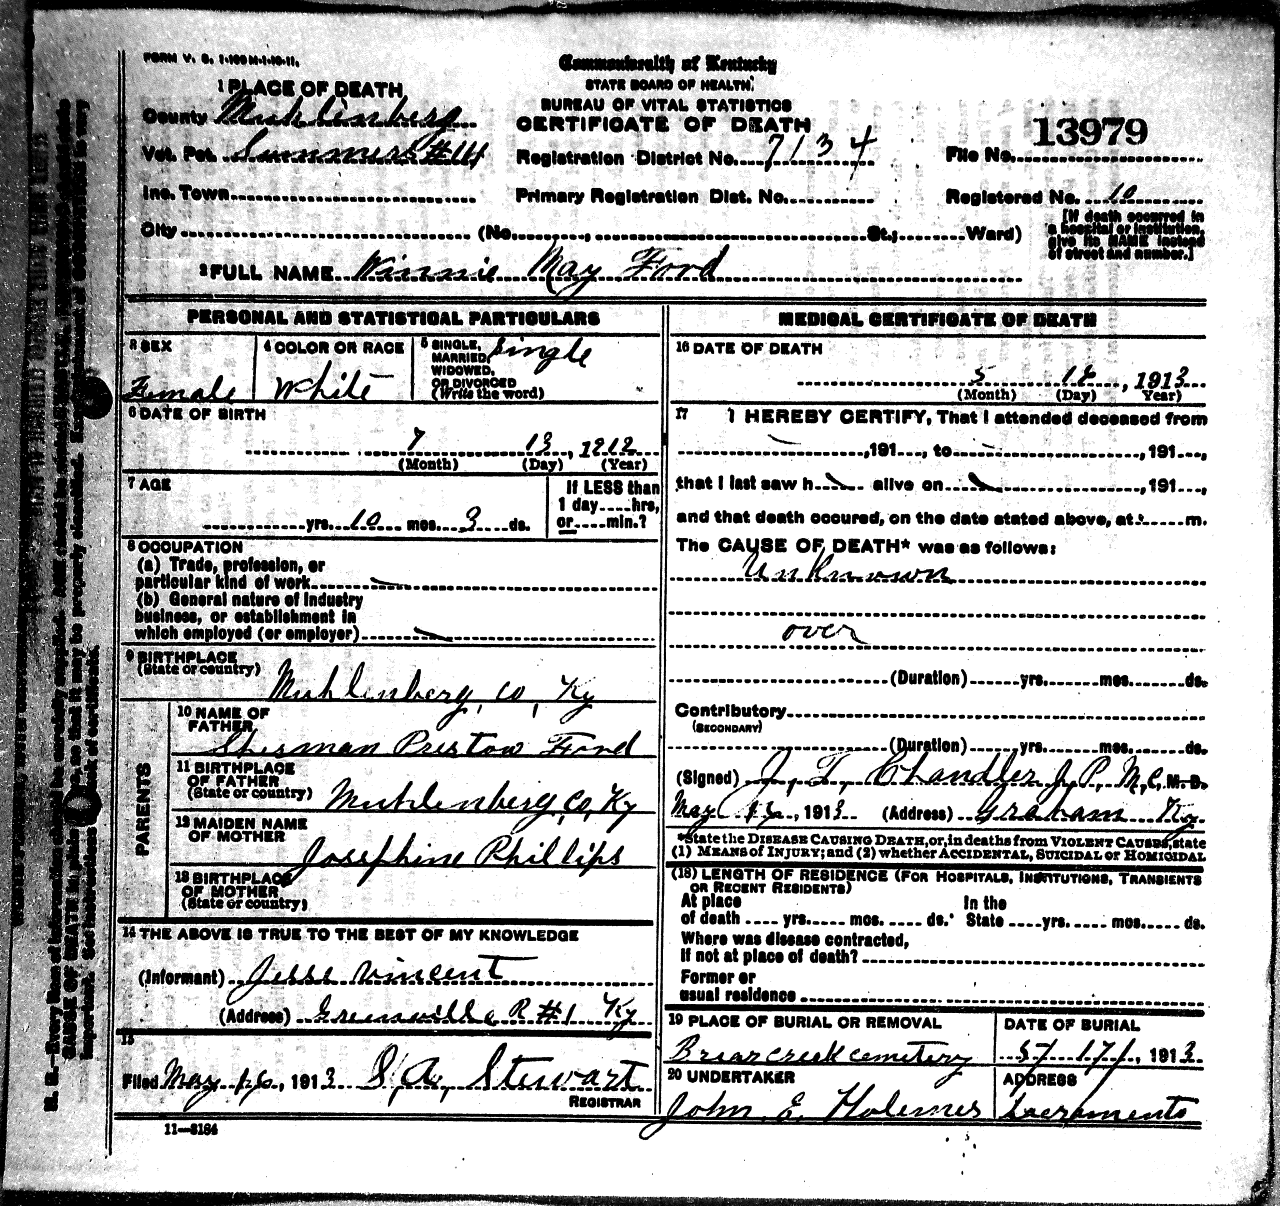 FORM V. S. 1-100M-1-10-11.
Commonwealth of Kentucky
STATE BOARD OF HEALTH.
BUREAU OF VITAL STATISTICS
CERTIFICATE OF DEATH
1 PLACE OF DEATH
County Muhlenberg
Vot. Pct. Summers #14
Registration District No. 7134
File No. 13979
Inc. Town
Primary Registration Dist. No.
Registered No. 10
City (No. , St.; Ward)
[If death occurred in a hospital or institution, give its NAME instead of street and number.]
2 FULL NAME Winnie May Ford
PERSONAL AND STATISTICAL PARTICULARS
3 SEX
Female
4 COLOR OR RACE
White
5 SINGLE, MARRIED, WIDOWED, OR DIVORCED (Write the word)
Single
6 DATE OF BIRTH
7 13, 1912
(Month) (Day) (Year)
7 AGE
yrs. 10 mos. 3 ds.
If LESS than 1 day....hrs, or....min.?
8 OCCUPATION
(a) Trade, profession, or
particular kind of work
(b) General nature of industry
business, or establishment in
which employed (or employer)
9 BIRTHPLACE
(State or country)
Muhlenberg, co, Ky
PARENTS
10 NAME OF FATHER
Sherman Preston Ford
11 BIRTHPLACE OF FATHER
(State or country) Muhlenberg, Co, Ky
12 MAIDEN NAME OF MOTHER
Josephine Phillips
13 BIRTHPLACE OF MOTHER
(State or country)
14 THE ABOVE IS TRUE TO THE BEST OF MY KNOWLEDGE
(Informant) Jesse Vincent
(Address) Greenville R #1 Ky
15
Filed May 16, 1913 Stewart
REGISTRAR
11—3184
MEDICAL CERTIFICATE OF DEATH
16 DATE OF DEATH
5 , 1913
(Month) (Day) Year)
17 I HEREBY CERTIFY, That I attended deceased from
,191..., to ,191...,
that I last saw h alive on ,191...,
and that death occured, on the date stated above, at m.
The CAUSE OF DEATH* was as follows:
Unknown
over
(Duration) yrs. mos. ds.
Contributory
(SECONDARY)
(Duration) yrs. mos. ds.
(Signed) J, T, Chandler J, P, M, C, M. D.
May , 1913 (Address) Graham Ky.
*State the DISEASE CAUSING DEATH, or, in deaths from VIOLENT CAUSES, state
(1) MEANS OF INJURY; and (2) whether ACCIDENTAL, SUICIDAL or HOMICIDAL
(18) LENGTH OF RESIDENCE (FOR HOSPITALS, INSTITUTIONS, TRANSIENTS
OR RECENT RESIDENTS)
At place of death .... yrs. .... mos. .... ds. In the State .... yrs. .... mos. .... ds.
Where was disease contracted,
If not at place of death?
Former or
usual residence
19 PLACE OF BURIAL OR REMOVAL
Briar creek cemetery
DATE OF BURIAL
5/ 17/, 1913
20 UNDERTAKER
John E Holemes
ADDRESS
Sacramento